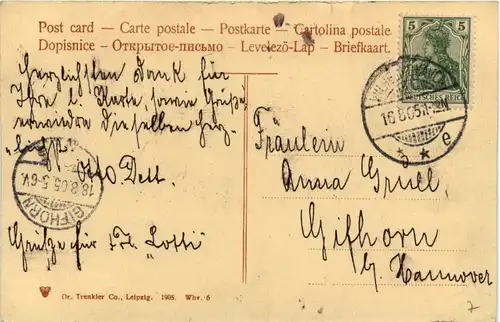 Post card — Carte postale — Postkarte — Cartolina postale
Dopisnice — Открытое-письмо — Levelező-Lap — Briefkaart.
5 5
DEUTSCHES REICH
16.8.05.11-12N.
* * e
Herzlichsten Dank für
Ihre l. Karte, sowie Grüße
erwidre dieselben herz-
lichst
Otto Dett.
GIFHORN
18.8.05.5-6V.
Grüße für Frl. "Lotti"
Fräulein
Anna Gruell.
Gifhorn
b/ Hannover
Dr. Trenkler Co., Leipzig. 1905. Whv. 6
7